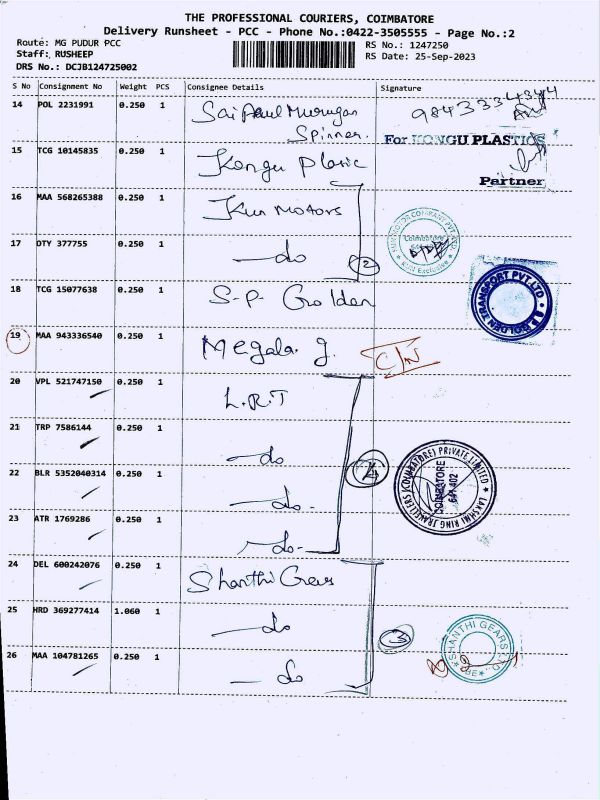 THE PROFESSIONAL COURIERS, COIMBATORE
Delivery Runsheet - PCC - Phone No.:0422-3505555 - Page No.:2
Route: MG PUDUR PCC
RS No.: 1247250
Staff: RUSHEEP
RS Date: 25-Sep-2023
DRS No.: DCJB124725002
S No Consignment No Weight PCS Consignee Details Signature
14 POL 2231991 0.250 1 Sai Arul Murugan
Spinner.
15 TCG 10145835 0.250 1 Kongu Plasic
For KONGU PLASTICS
Partner
16 MAA 568265388 0.250 1 Kun Motors
17 DTY 377755 0.250 1 —do 2
Coimbatore
Kun Exclusive
18 TCG 15077638 0.250 1 S.P. Golden
GOLDEN TRANSPORT PVT.LTD
19 MAA 943336540 0.250 1 Megala. g. C/N
20 VPL 521747150 0.250 1 L.R.T
21 TRP 7586144 0.250 1 —do
22 BLR 5352040314 0.250 1 —do. 4
LAKSHMI RING TRAVELLERS (COIMBATORE) PRIVATE LIMITED
COIMBATORE
641 402
23 ATR 1769286 0.250 1 —do-
24 DEL 600242076 0.250 1 Shanthi Gears
25 HRD 369277414 1.060 1 —do 3
SHANTHI GEARS LTD.
CBE
26 MAA 104781265 0.250 1 —do